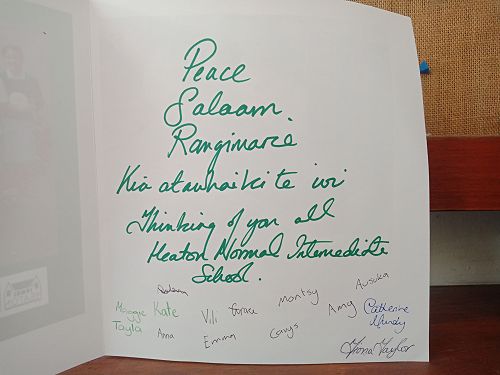 Peace
Salaam
Rangimarie
Kia atawhai ki te iwi
Thinking of you all
Heaton Normal Intermediate
School.
Maggie Kate Vili Grace Montsy Ausuka
Tayla Anna Emma Amy Catherine
Mundy
Fiona Taylor